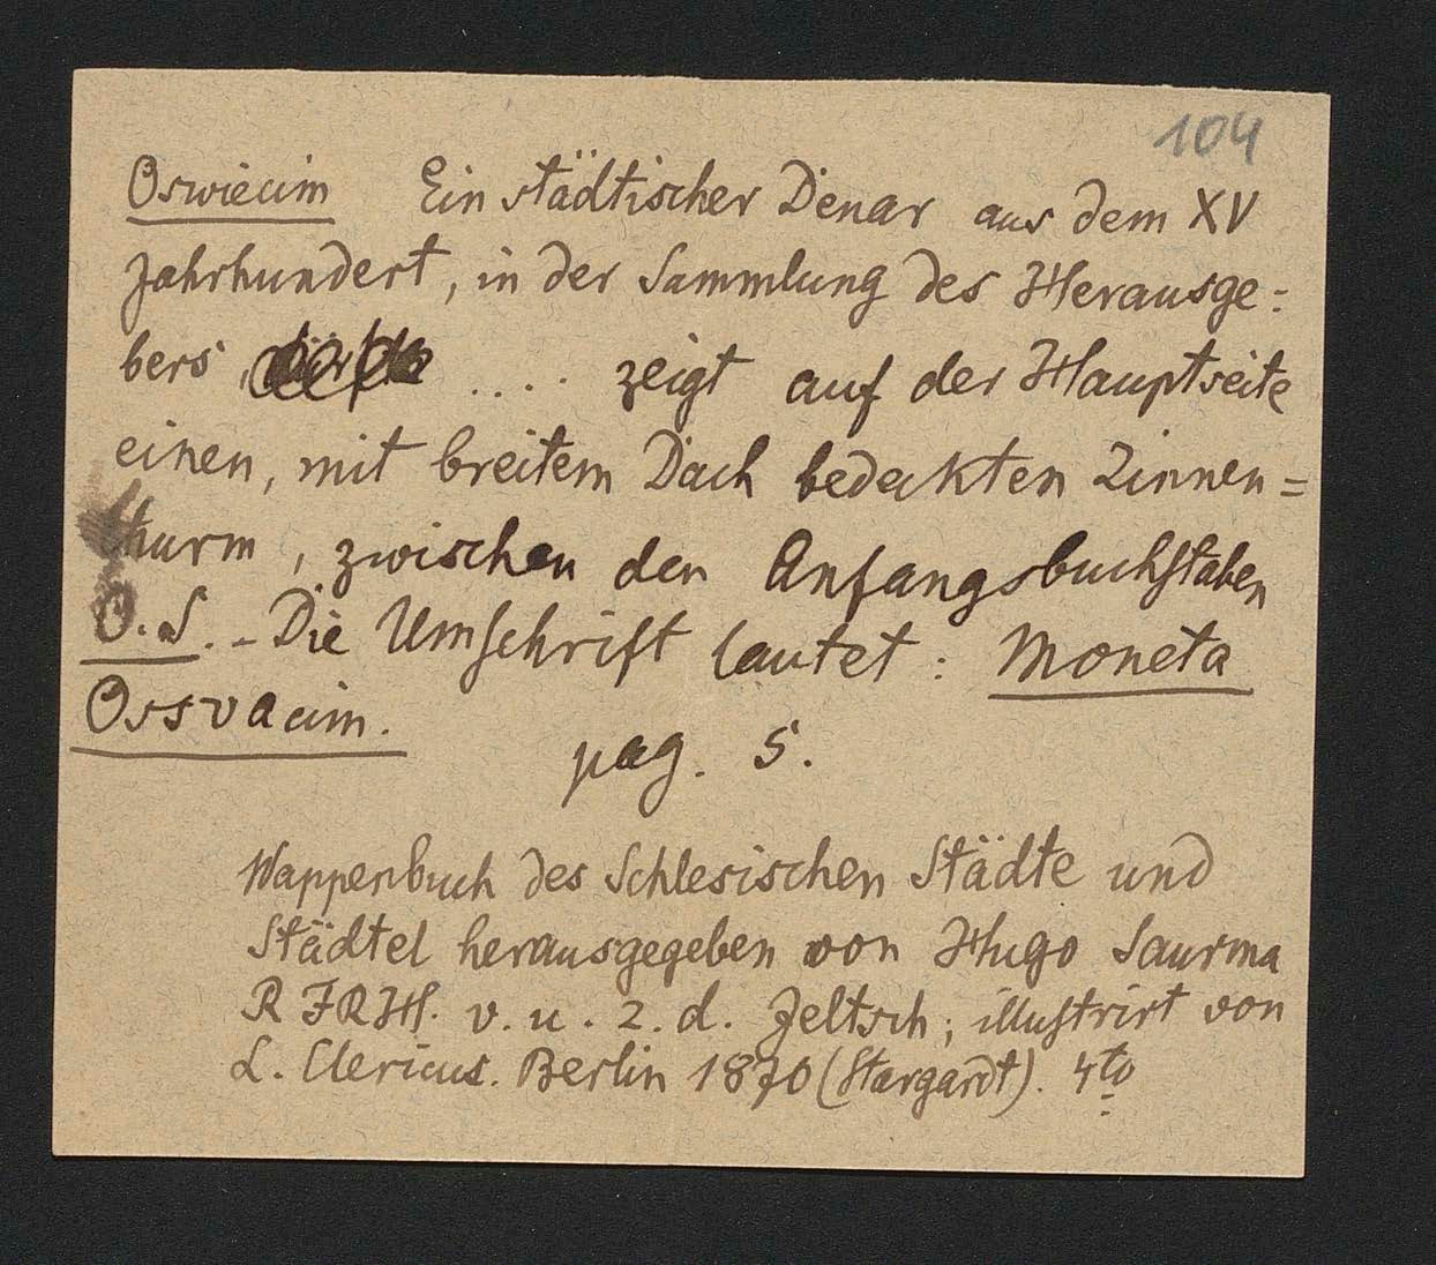 104
Oswiecim Ein städtischer Denar aus dem XV
Jahrhundert, in der Sammlung des Herausge=
bers, .... zeigt auf der Hauptseite
einen, mit breitem Dach bedekten Zinnen=
thurm, zwischen den Anfangsbuchstaben
O. S. - Die Umschrift lautet: Moneta
Ossvacim.
pag. 5.
Wappenbuch des Schlesischen Städte und
Städtel herausgegeben von Hugo Saurma
R F R H. v. u. z. d. Jeltsch; illustrirt von
L. Clericus. Berlin 1870 (Stargardt). 4to